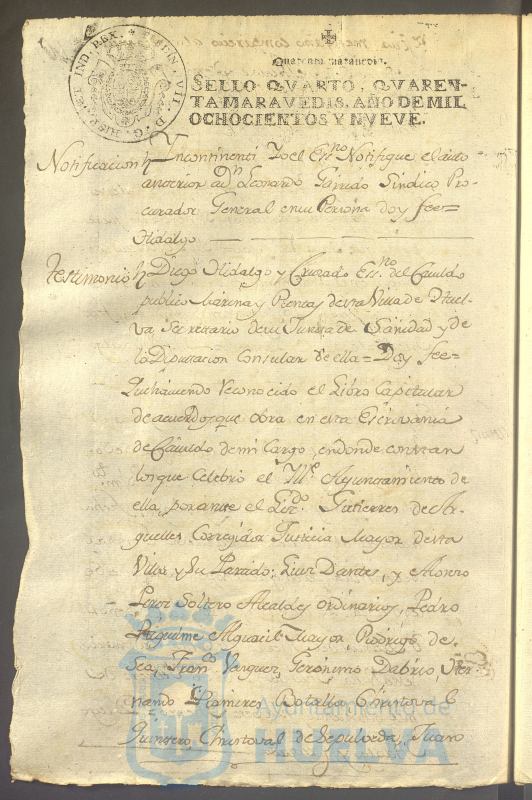 FERDIN. VII. D. G. HISP. ET IND. REX.
Quarenta maravedis.
SELLO QVARTO, QVAREN-
TA MARAVEDIS, AÑO DE MIL
OCHOCIENTOS Y NVEVE.
Notificacion Yncontinenti Yo el Essno Notifique el auto
anterior a Dn Leonardo Garrido Sindico Pro-
curador General en su Persona doy fee=
Hidalgo
Testimonio Diego Hidalgo y Cruzado Essno del Cavildo
publico Marina y Rentas de esta Villa de Huel-
va Secretario de su Junta de Sanidad y de
la Diputacion Consular de ella = Doy fee=
Que haviendo reconocido el Libro Capitular
de acuerdos que obra en esta Escrivania
de Cavildo de mi cargo, en donde constan
los que Celebró el Ylle Ayuntamiento de
ella, por ante el Lizdo Gutierres de Ar-
guelles Corregidor Justicia Mayor de esta
Villa y Su Partido; Luis Dantes, y Moreno
Perez Soltero Alcaldes ordinarios, Pedro
Alguacil Mayor, Rodrigo de
Sea, Franco Vasquez, Geronimo Dabrio, Her-
nando Ramires Botalla, Christoval
Quintero, Christoval de Sepulveda, Juan
Ayuntamiento de
HUELVA